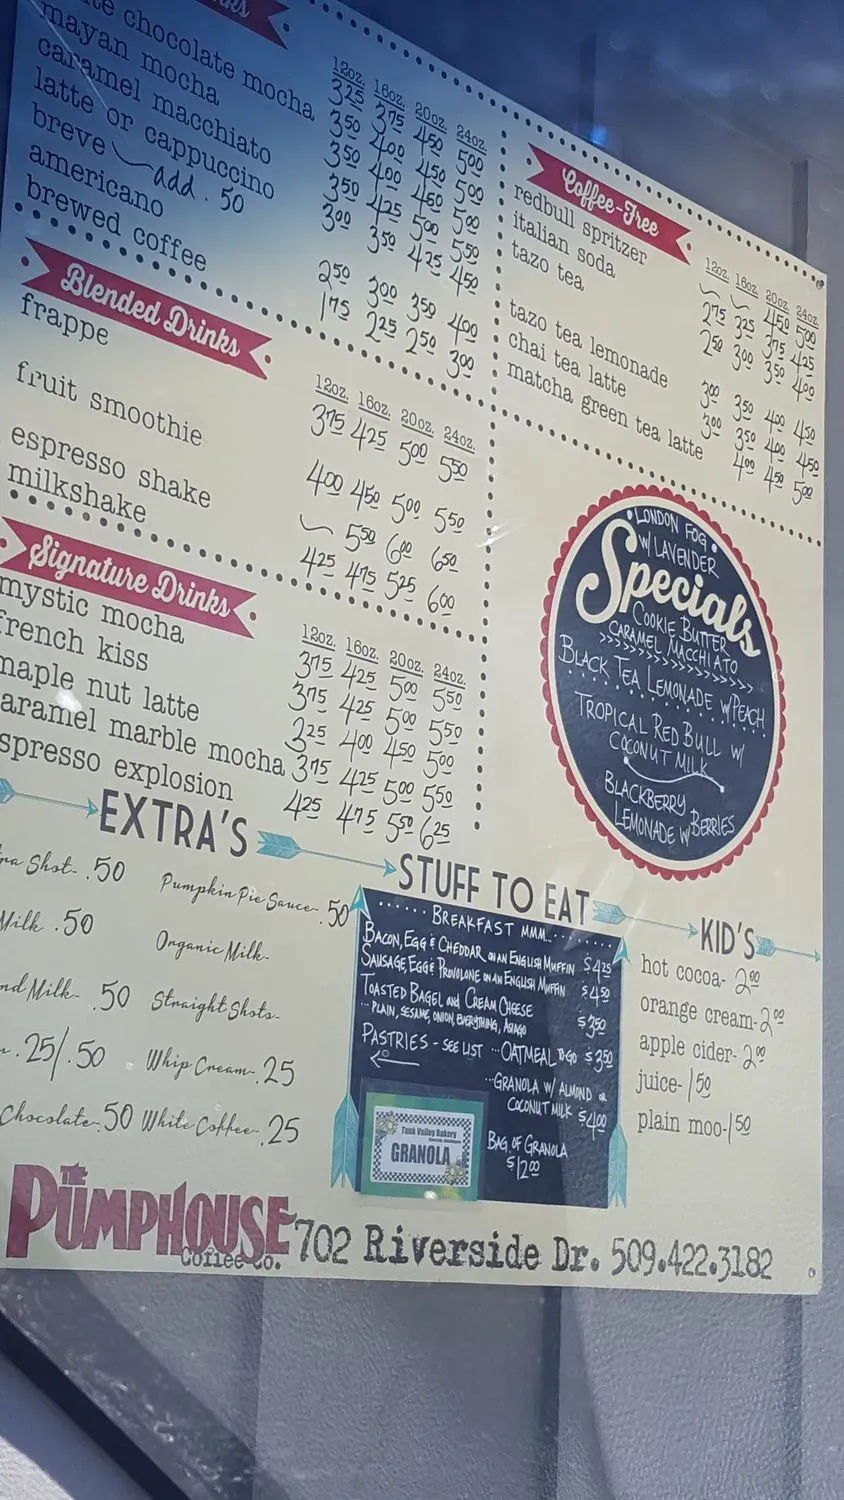 te chocolate mocha
mayan mocha
caramel macchiato
latte or cappuccino
breve add .50
americano
brewed coffee
12oz. 16oz. 20oz. 24oz.
3 25 3 75 4 50 5 00
3 50 4 00 4 50 5 00
3 50 4 00 4 50 5 00
3 50 4 25 5 00 5 50
3 00 3 50 4 25 4 50
2 50 3 00 3 50 4 00
1 75 2 25 2 50 3 00
Blended Drinks
12oz. 16oz. 20oz. 24oz.
frappe 3 75 4 25 5 00 5 50
fruit smoothie 4 00 4 50 5 00 5 50
espresso shake ~ 5 50 6 00 6 50
milkshake 4 25 4 75 5 25 6 00
Signature Drinks
12oz. 16oz. 20oz. 24oz.
mystic mocha 3 75 4 25 5 00 5 50
french kiss 3 75 4 25 5 00 5 50
maple nut latte 3 25 4 00 4 50 5 00
aramel marble mocha 3 75 4 25 5 00 5 50
spresso explosion 4 25 4 75 5 50 6 25
Coffee-Free
12oz. 16oz. 20oz. 24oz.
redbull spritzer ~ ~ 4 50 5 00
italian soda 2 75 3 25 3 75 4 25
tazo tea 2 50 3 00 3 50 4 00
tazo tea lemonade 3 00 3 50 4 00 4 50
chai tea latte 3 00 3 50 4 00 4 50
matcha green tea latte 4 00 4 50 5 00
LONDON FOG
W/ LAVENDER
Specials
COOKIE BUTTER
CARAMEL MACCHIATO
>>>>>>>>>>>>>>>>
BLACK TEA LEMONADE W/PEACH
TROPICAL RED BULL W/
COCONUT MILK
BLACKBERRY
LEMONADE W/ BERRIES
EXTRA'S
ra Shot- .50
Milk .50
nd Milk- .50
.25/.50
Chocolate- .50
Pumpkin Pie Sauce- .50
Organic Milk-
Straight Shots-
Whip Cream- .25
White Coffee- .25
STUFF TO EAT
BREAKFAST MMM...
BACON, EGG & CHEDDAR ON AN ENGLISH MUFFIN $4 25
SAUSAGE, EGG & PROVOLONE ON AN ENGLISH MUFFIN $4 50
TOASTED BAGEL AND CREAM CHEESE
... PLAIN, SESAME, ONION, EVERYTHING, ASIAGO $3 50
PASTRIES - SEE LIST ... OATMEAL TO GO $3 50
... GRANOLA W/ ALMOND OR
COCONUT MILK $4 00
BAG OF GRANOLA
$12 00
Tunk Valley Bakery
GRANOLA
KID'S
hot cocoa- 2 00
orange cream- 2 00
apple cider- 2 00
juice- 1 50
plain moo- 1 50
THE PUMPHOUSE
Coffee Co.
702 Riverside Dr. 509.422.3182